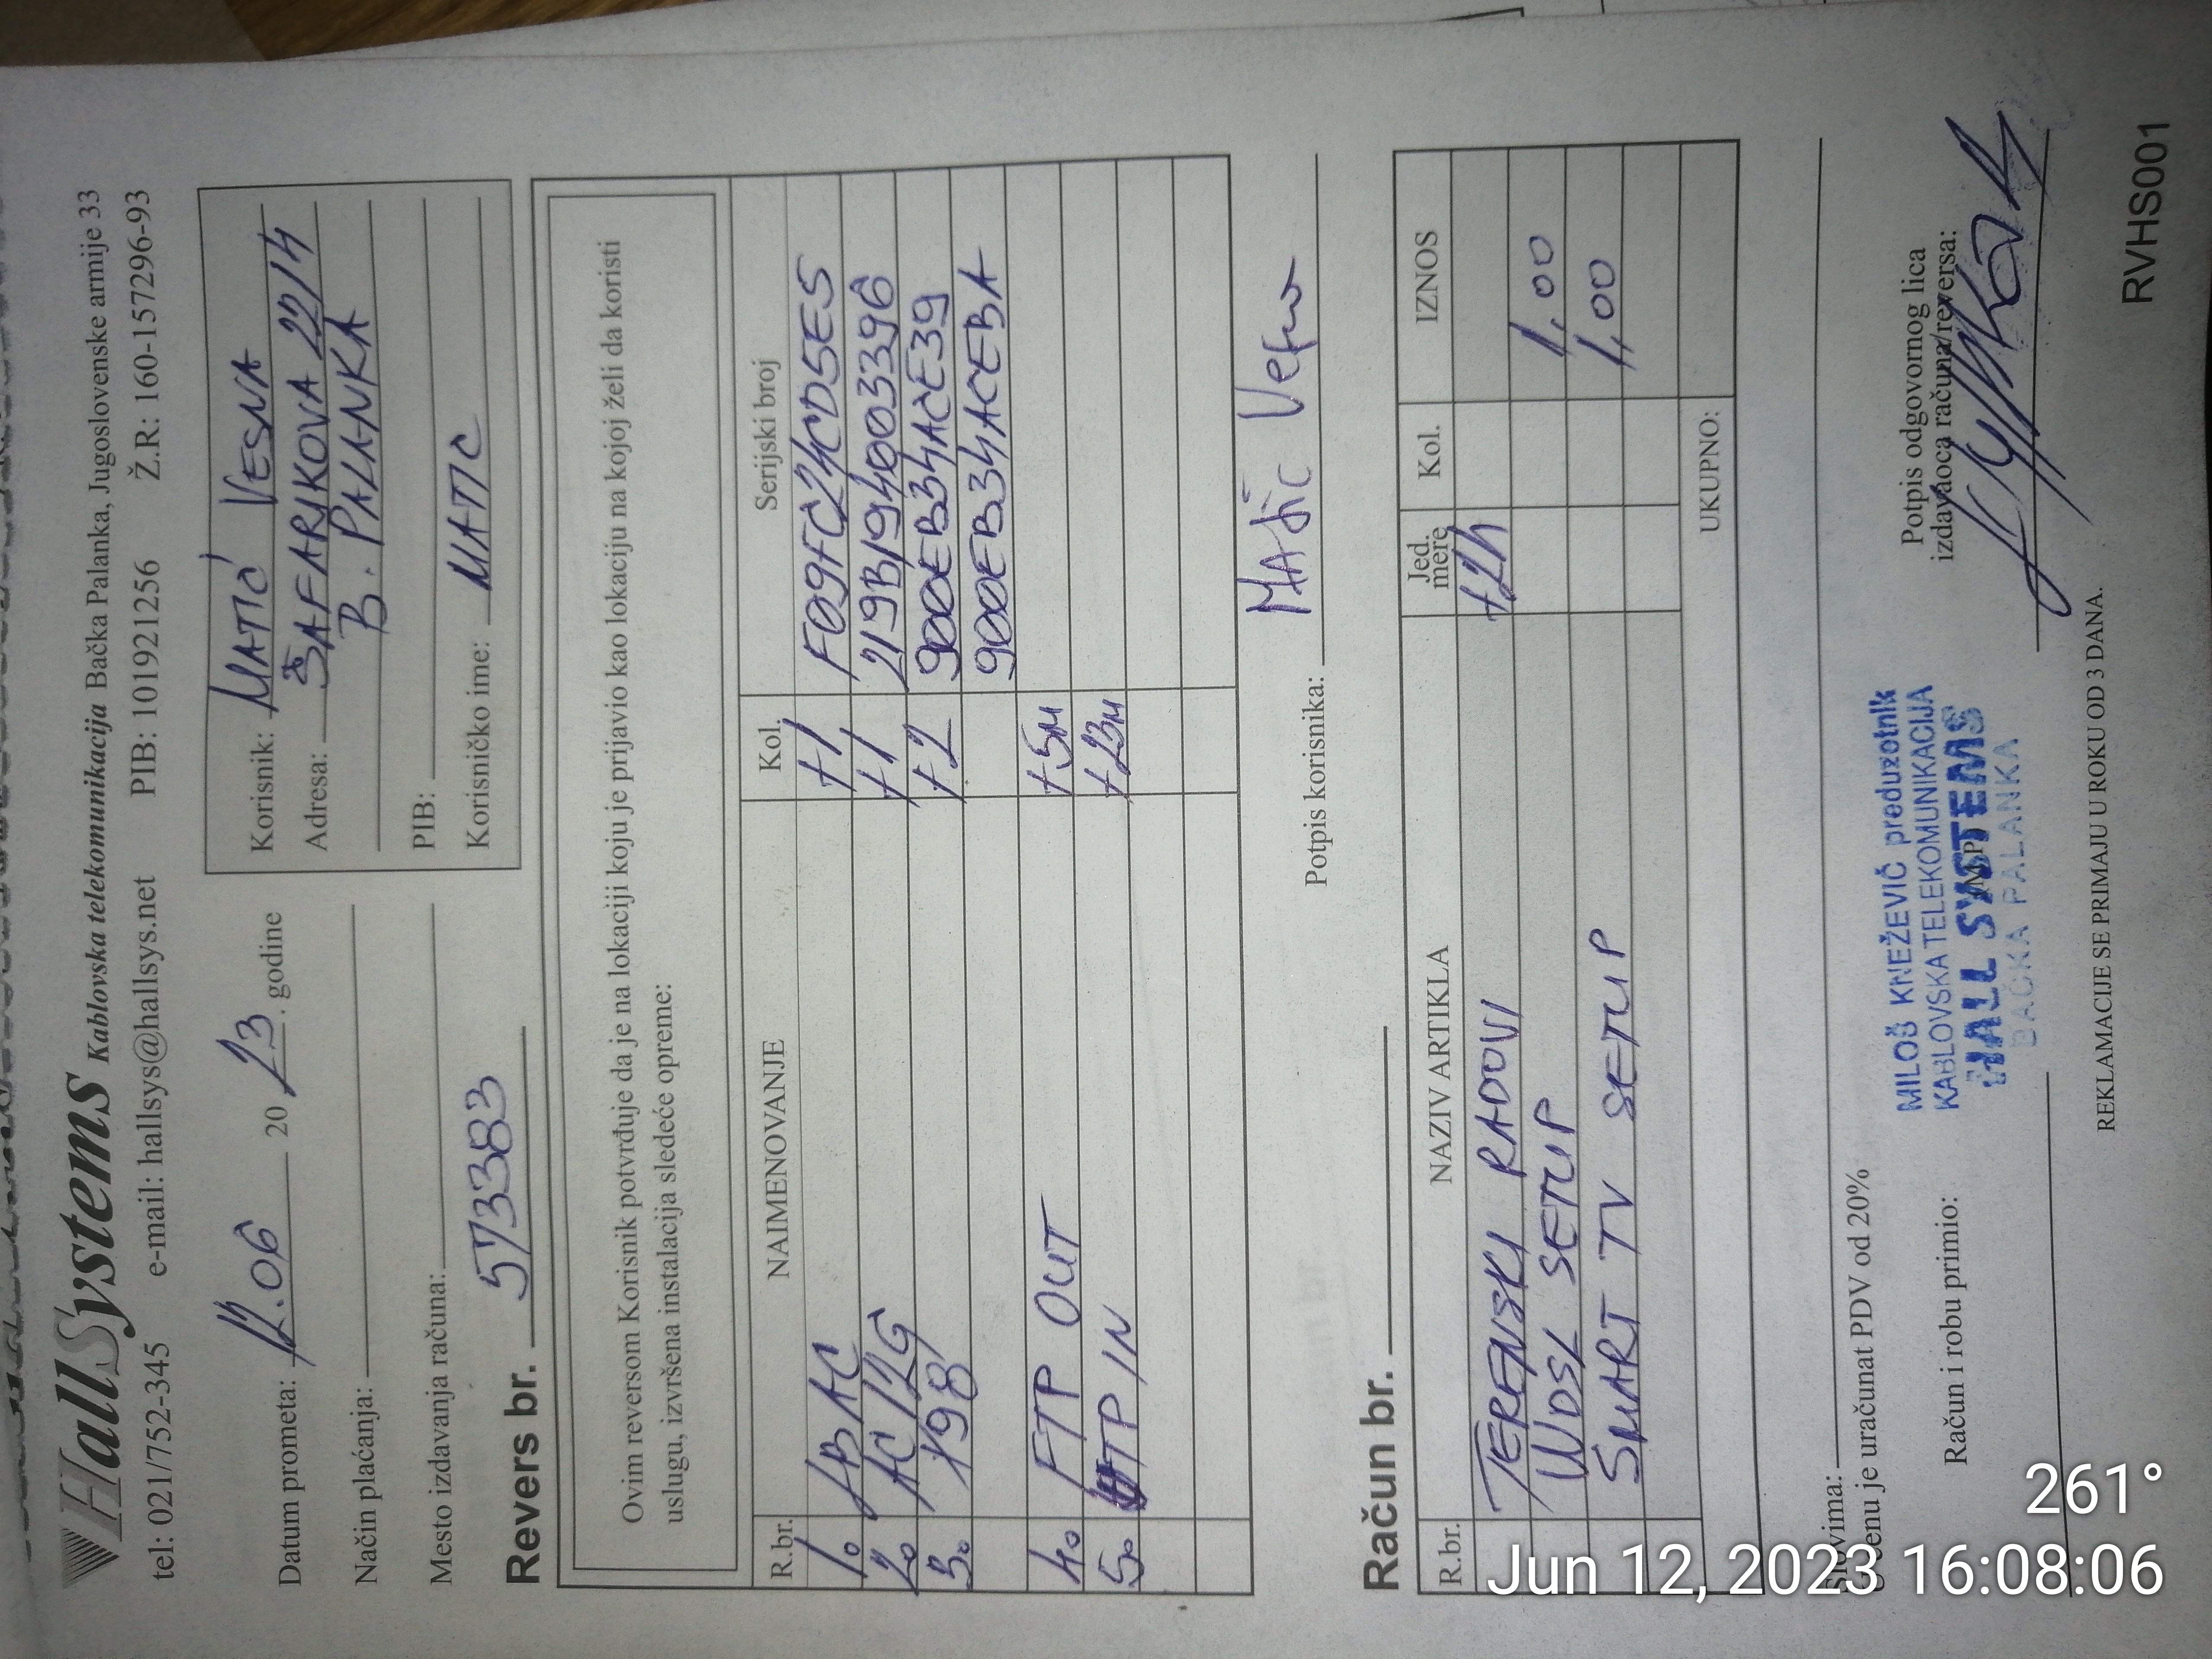 HallSystems Kablovska telekomunikacija Bačka Palanka, Jugoslovenske armije 33
tel: 021/752-345 e-mail: hallsys@hallsys.net PIB: 101921256 Ž.R: 160-157296-93
Datum prometa: 12.06 2023. godine
Način plaćanja:
Mesto izdavanja računa:
Korisnik: MATIĆ VESNA
Adresa: ŠAFARIKOVA 22/4
B. PALANKA
PIB:
Korisničko ime: MATIC
Revers br. 573383
Ovim reversom Korisnik potvrđuje da je na lokaciji koju je prijavio kao lokaciju na kojoj želi da koristi
uslugu, izvršena instalacija sledeće opreme:
R.br. NAIMENOVANJE Kol. Serijski broj
1. LBAC +1 F09FC24CD5E5
2. AC12G +1 219B194003396
3. 198 +2 900EB34ACE39
900EB34ACEBA
4. FTP OUT +5M
5. UTP IN +23M
Potpis korisnika: Matić Vesna
Račun br.
R.br. NAZIV ARTIKLA Jed. mere Kol. IZNOS
TERENSKI RADOVI +2h
WDSL SETUP 1,00
SMART TV SETUP 1,00
UKUPNO:
Slovima:
U cenu je uračunat PDV od 20%
Račun i robu primio:
MILOŠ KNEŽEVIĆ preduzetnik
KABLOVSKA TELEKOMUNIKACIJA
HALL SYSTEMS
BAČKA PALANKA
(M.P.)
Potpis odgovornog lica
izdavaoca računa/reversa:
REKLAMACIJE SE PRIMAJU U ROKU OD 3 DANA.
RVHS001
261°
Jun 12, 2023 16:08:06